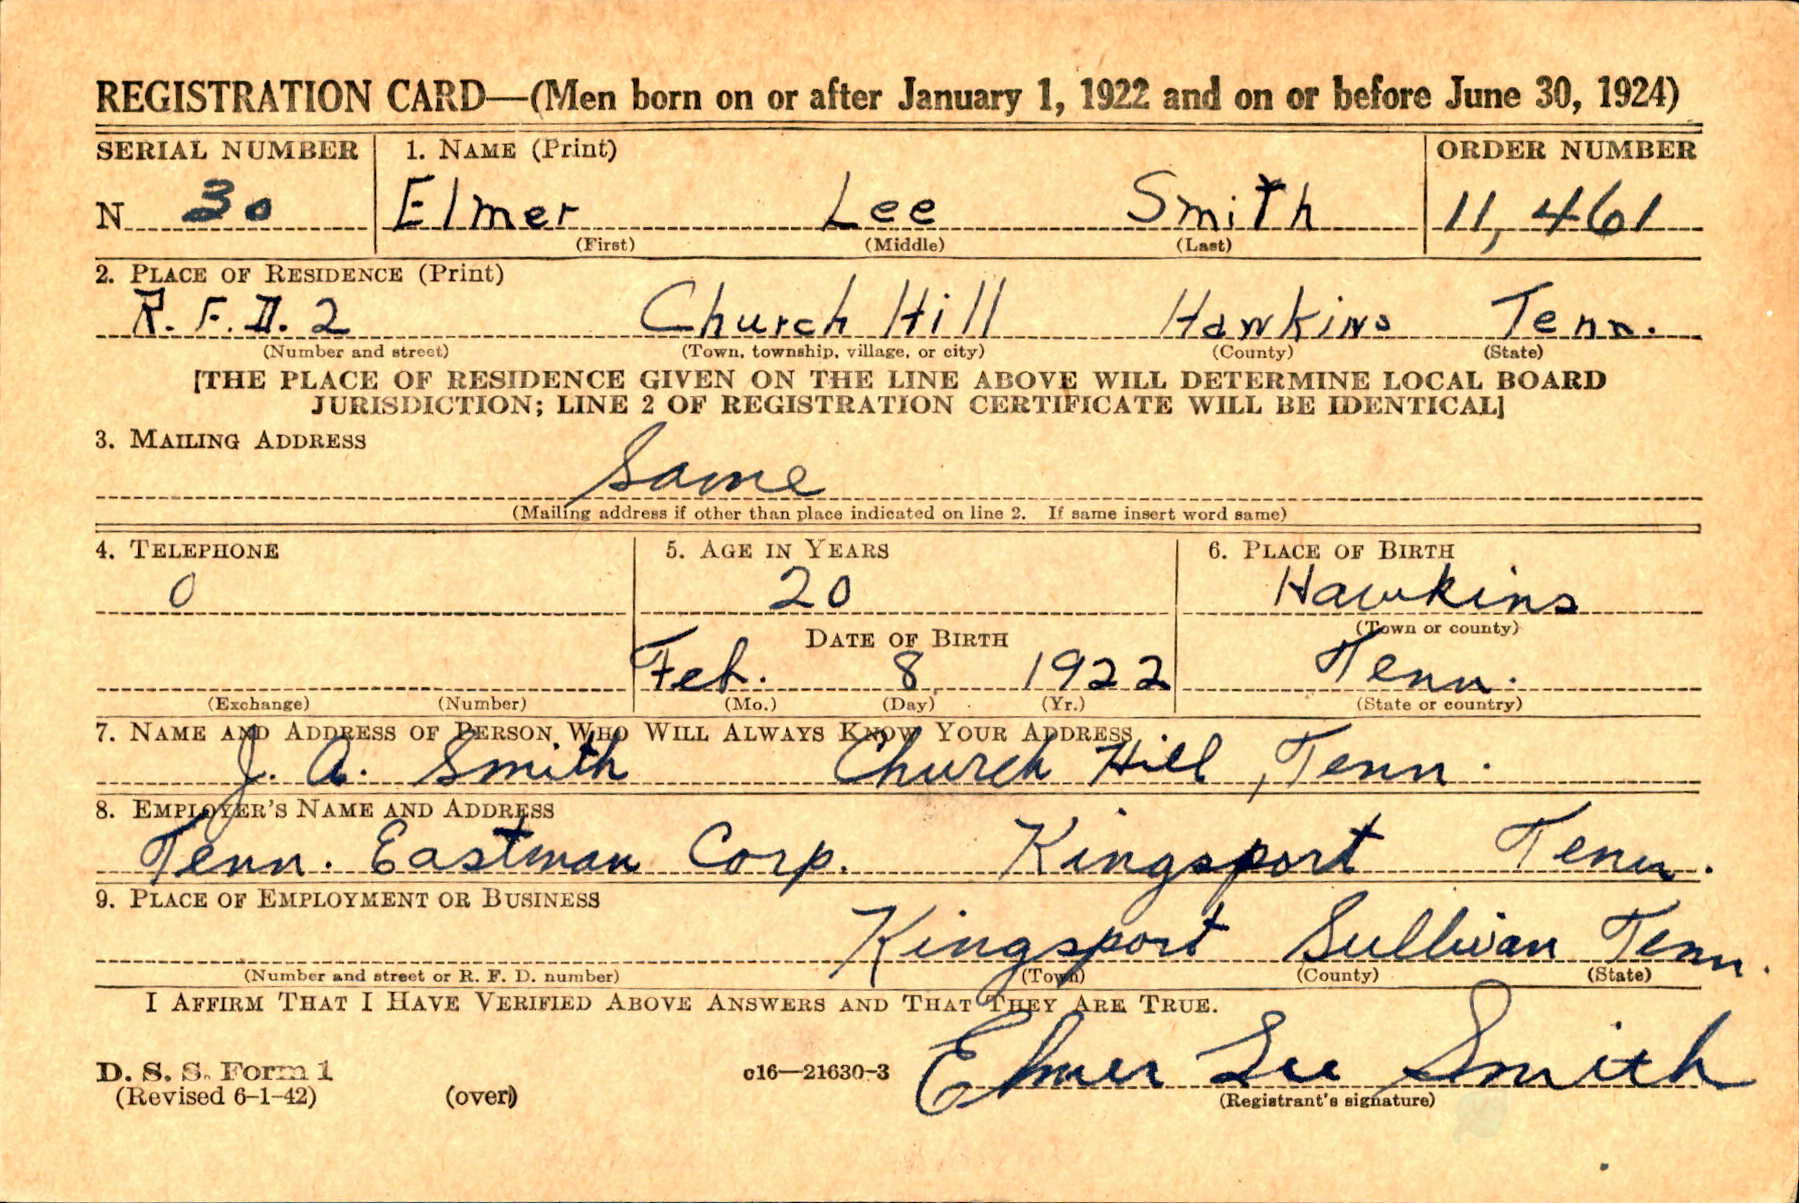 REGISTRATION CARD—(Men born on or after January 1, 1922 and on or before June 30, 1924)
SERIAL NUMBER 1. NAME (Print) ORDER NUMBER
N 30 Elmer Lee Smith 11,461
(First) (Middle) (Last)
2. PLACE OF RESIDENCE (Print)
R.F.D. 2 Church Hill Hawkins Tenn.
(Number and street) (Town, township, village, or city) (County) (State)
[THE PLACE OF RESIDENCE GIVEN ON THE LINE ABOVE WILL DETERMINE LOCAL BOARD
JURISDICTION; LINE 2 OF REGISTRATION CERTIFICATE WILL BE IDENTICAL]
3. MAILING ADDRESS
Same
(Mailing address if other than place indicated on line 2. If same insert word same)
4. TELEPHONE 5. AGE IN YEARS 6. PLACE OF BIRTH
0 20 Hawkins
DATE OF BIRTH (Town or county)
Feb. 8 1922 Tenn.
(Exchange) (Number) (Mo.) (Day) (Yr.) (State or country)
7. NAME AND ADDRESS OF PERSON WHO WILL ALWAYS KNOW YOUR ADDRESS
J. A. Smith Church Hill, Tenn.
8. EMPLOYER'S NAME AND ADDRESS
Tenn. Eastman Corp. Kingsport Tenn.
9. PLACE OF EMPLOYMENT OR BUSINESS
Kingsport Sullivan Tenn.
(Number and street or R. F. D. number) (Town) (County) (State)
I AFFIRM THAT I HAVE VERIFIED ABOVE ANSWERS AND THAT THEY ARE TRUE.
D. S. S. Form 1 c16—21630-3 Elmer Lee Smith
(Revised 6-1-42) (over) (Registrant's signature)